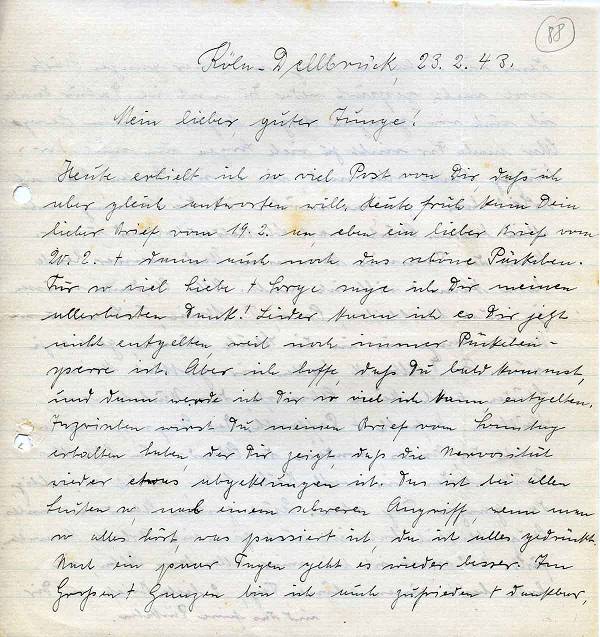 88
Köln-Dellbrück, 23.2.43.
Mein lieber guter Junge!
Heute erhielt ich so viel Post von Dir, daß ich
aber gleich antworten will. Heute früh kam Dein
lieber Brief vom 19.2. an, eben ein lieber Brief vom
20.2. + dann auch noch das schöne Päckchen.
Für so viel Liebe + Sorge sage ich Dir meinen
allerbesten Dank! Leider kann ich es Dir jetzt
nicht entgelten, weil noch immer Päckchen-
sperre ist. Aber ich hoffe, daß Du bald kommst,
und dann werde ich Dir so viel ich kann entgelten.
Inzwischen wirst Du meinen Brief vom Sonntag
erhalten haben, der Dir zeigt, daß die Nervosität
wieder etwas abgeklungen ist. Das ist bei allen
Leuten so, nach einem schweren Angriff, wenn man
so alles hört, was passiert ist, da ist alles gedrückt.
Nach ein paar Tagen geht es wieder besser. Im
Großen + Ganzen bin ich auch zufrieden + dankbar,